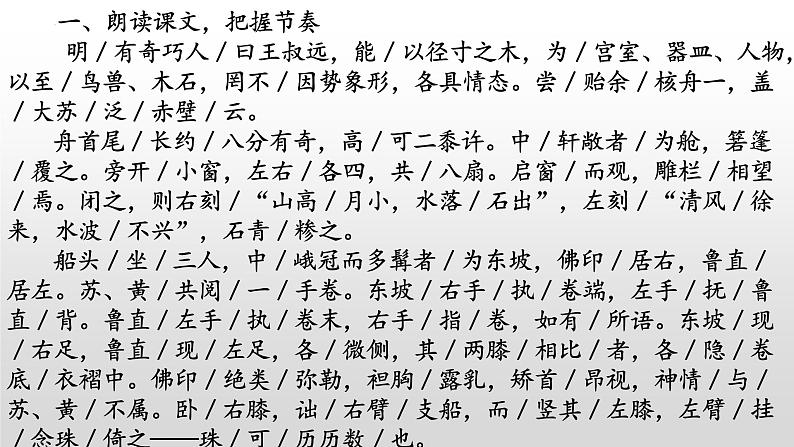 一、朗读课文，把握节奏
明／有奇巧人／曰王叔远，能／以径寸之木，为／宫室、器皿、人物，
以至／鸟兽、木石，罔不／因势象形，各具情态。尝／贻余／核舟一，盖
／大苏／泛／赤壁／云。
舟首尾／长约／八分有奇，高／可二黍许。中／轩敞者／为舱，箬篷
／覆之。旁开／小窗，左右／各四，共／八扇。启窗／而观，雕栏／相望
／焉。闭之，则右刻／“山高／月小，水落／石出”，左刻／“清风／徐
来，水波／不兴”，石青／糁之。
船头／坐／三人，中／峨冠而多髯者／为东坡，佛印／居右，鲁直／
居左。苏、黄／共阅／一／手卷。东坡／右手／执／卷端，左手／抚／鲁
直／背。鲁直／左手／执／卷末，右手／指／卷，如有／所语。东坡／现
／右足，鲁直／现／左足，各／微侧，其／两膝／相比／者，各／隐／卷
底／衣褶中。佛印／绝类／弥勒，袒胸／露乳，矫首／昂视，神情／与／
苏、黄／不属。卧／右膝，诎／右臂／支船，而／竖其／左膝，左臂／挂
／念珠／倚之——珠／可／历历数／也。